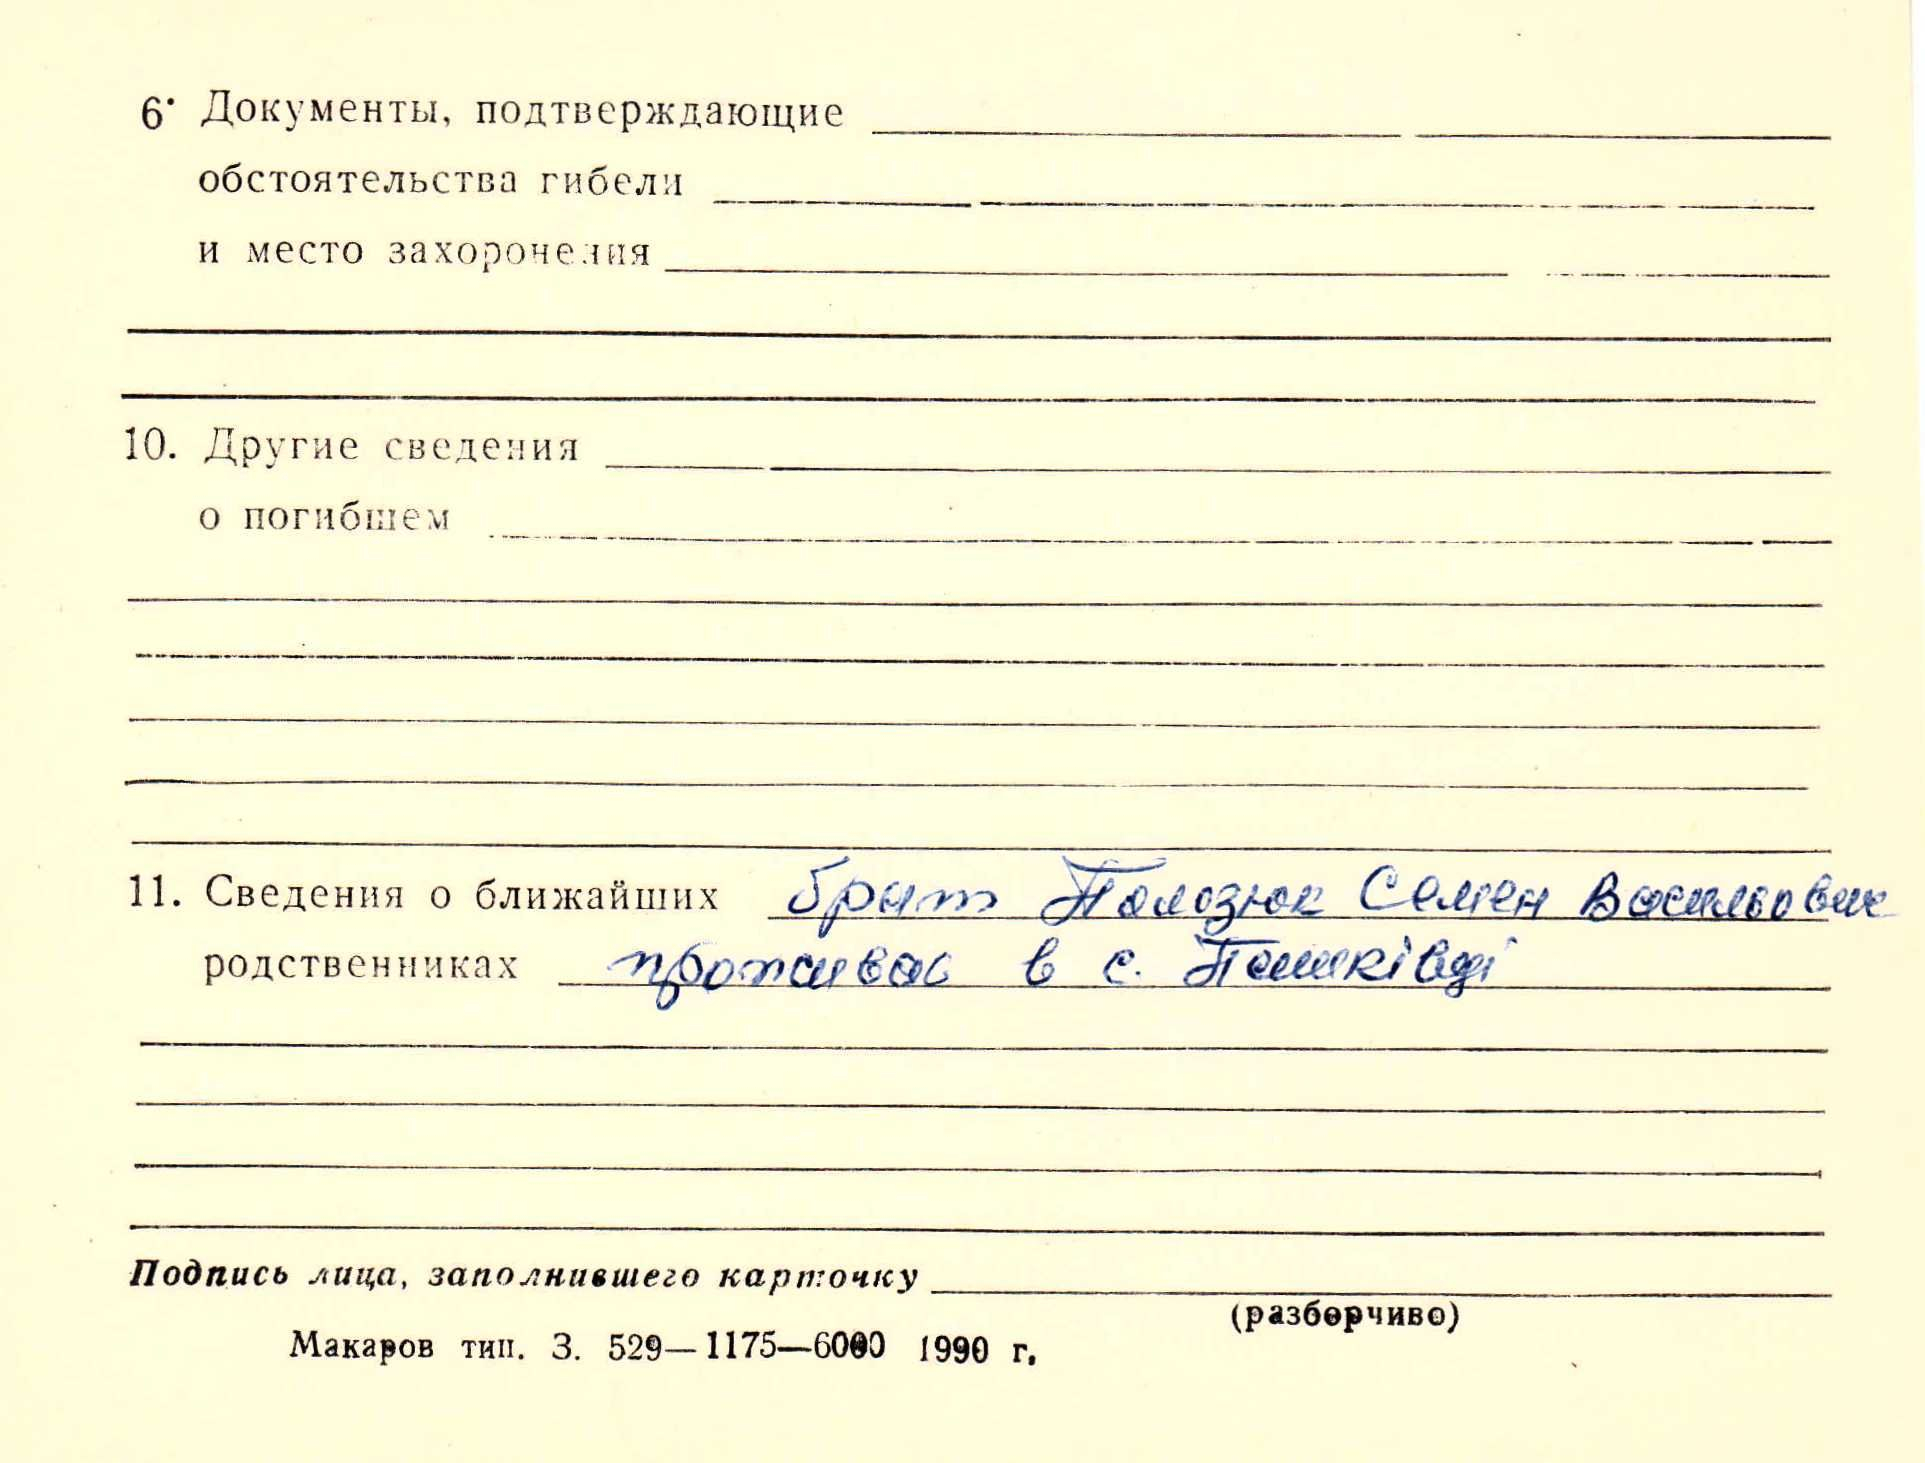 6. Документы, подтверждающие
обстоятельства гибели
и место захоронения
10. Другие сведения
о погибшем
11. Сведения о ближайших брат Полозюк Семен Васильович
родственниках проживає в с. Пашківці
Подпись лица, заполнившего карточку
(разборчиво)
Макаров тип. З. 529—1175—6000 1990 г.